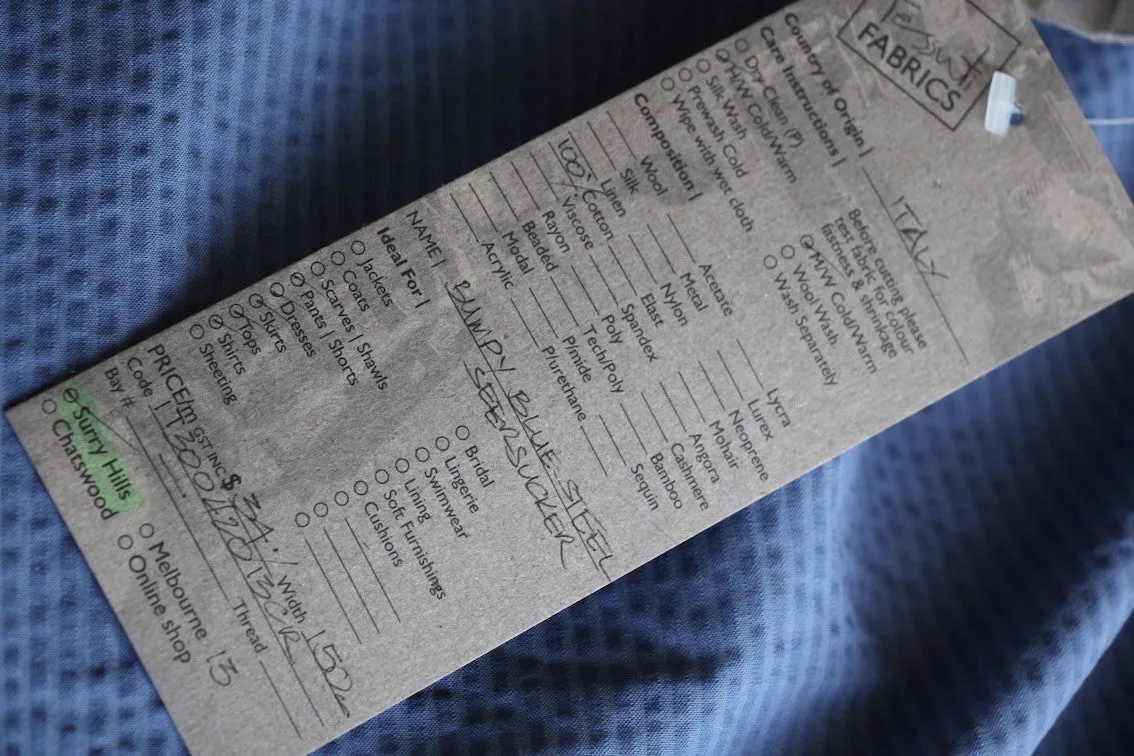 Tessuti
FABRICS
Country of Origin | ITALY
Care Instructions |
Before cutting please
test fabric for colour
fastness & shrinkage
Dry Clean (P)
H/W Cold/Warm
Silk Wash
Prewash Cold
Wipe with wet cloth
M/W Cold/Warm
Wool Wash
Wash Separately
Composition |
Wool
Silk
Linen
100% Cotton
Viscose
Rayon
Beaded
Modal
Acrylic
Acetate
Metal
Nylon
Elast
Spandex
Poly
Tech/Poly
P/mide
P/urethane
Lycra
Lurex
Neoprene
Mohair
Angora
Cashmere
Bamboo
Sequin
NAME | BUMPY BLUE STEEL
SEERSUCKER
Ideal For |
Jackets
Coats
Scarves | Shawls
Pants | Shorts
Dresses
Skirts
Tops
Shirts
Sheeting
Bridal
Lingerie
Swimwear
Lining
Soft Furnishings
Cushions
PRICE/m GST INC $ Width
Code
Bay # Thread
Surry Hills
Chatswood
Melbourne 13
Online shop